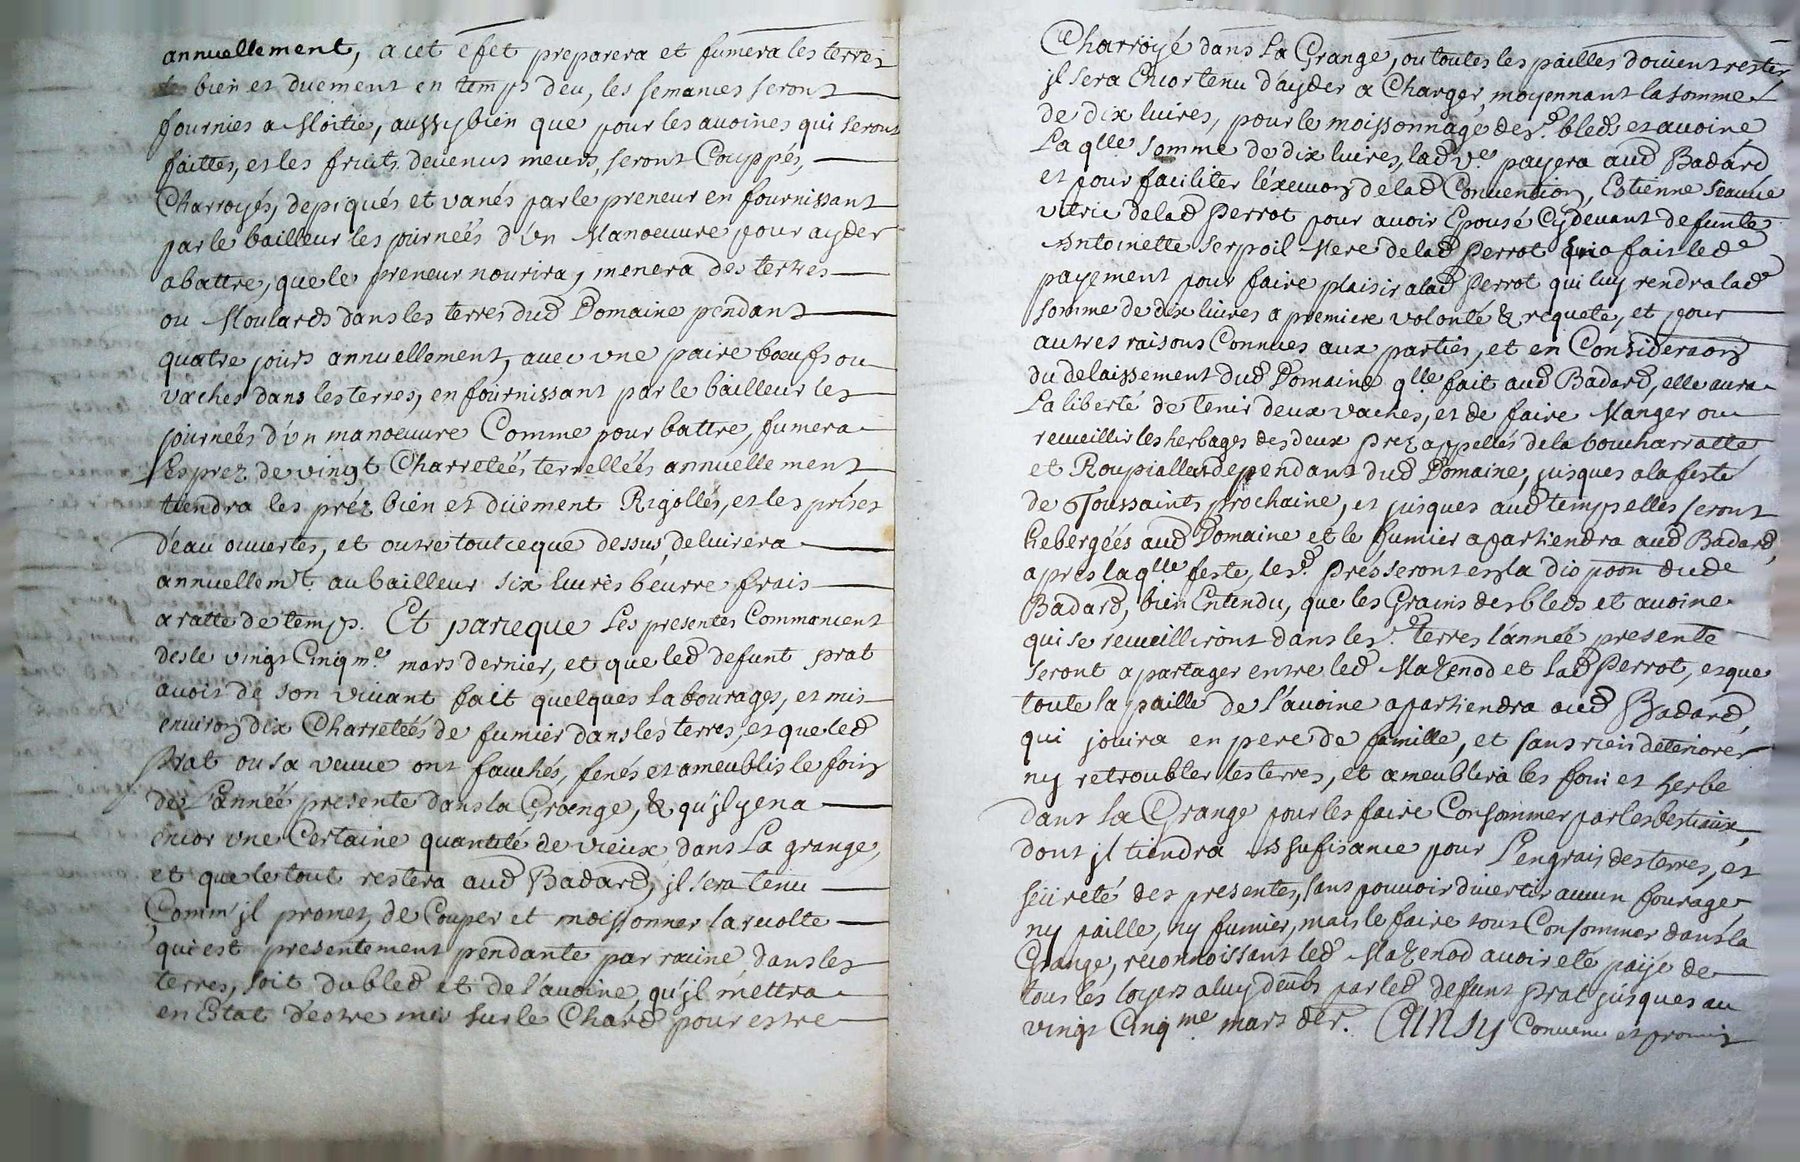 annuellement, a cet efet preparera et fumera les terres
bien et duement en temps deu, les semances seront
fournies a Moitié, aussy bien que pour les avoines qui seront
faittes, et les fruits devenus meurs, seront Couppés,
Charroyés, depiqués et vanés par le preneur en fournissant
par le bailleur les journeés d'un Manoeuvre pour ayder
a battre, que le preneur nourira, menera des tertres
ou Moulards dans les terres dud Domaine pendant
quatre jours annuellement, avec une paire bœufs ou
vaches dans les terres, en fournissant par le bailleur les
journeés d'un manoeuvre Comme pour battre, fumera
Les prez de vingt Charreteés terrelleés annuellement
tiendra les préz bien et düement Rigollés, et les prises
d'eau ouvertes, et outre tout ce que dessus, delivrera
annuellemt. au bailleur six livres beurre frais
a ratte de temps. Et parceque Les presentes Commancent
des le vingt Cinqme. mars dernier, et que led defunt prat
avoit de son vivant fait quelques labourages, et mis
environ dix Charreteés de fumier dans les terres, et que led
Prat ou sa veuve ont fauchés, fenés et ameublis le foin
de L'année presente dans la Grange, & qu'jl y en a
encor une Certaine quantité de vieux dans La grange,
et que le tout restera aud Badard, jl sera tenu
Comm'jl promet, de Couper et moissonner la recolte
qui est presentement pendante par racine dans les
terres, soit du bled et de l'avoine, qu'jl mettra
en Estat d'estre mis sur le Chard pour estre
Charroyé dans La Grange, ou toutes les pailles doivent rester
jl sera Encor tenu d'ayder a Charger, moyennant la somme
de dix livres, pour le moissonnage desd. bled et avoine
La qlle somme de dix livres, lad ve. payera aud Badard
et pour faciliter l'éxecuon de lad Convention, Estienne Seauve
vitric de lad Perrot pour avoir Epousé Cy devant defunte
Antoinette Serpoil Mere de lad Perrot a fait led
payement pour faire plaisir a lad Perrot qui luy rendra lad
somme de dix livres a premiere volonté & requete, et pour
autres raisons Connues aux parties, et en Consideraon
du delaissement dud Domaine qlle fait aud Badard, elle aura
La liberté de tenir deux vaches, et de faire Manger ou
recueillir les herbages des deux prez appellés de la boucharratte
et Roupiallar dependant dud Domaine, jusques a la feste
de Toussaints prochaine, et jusques aud temps elles seront
hebergeés aud Domaine et le fumier apartiendra aud Badard,
apres laqlle feste, lesd. prés seront en la dispoon dud
Badard, bien Entendu, que les Grains des bleds et avoine
qui se recueilliront dans lesd. terres l'anneé presente
seront a partager entre led Mazenod et lad Perrot, et que
toute la paille de l'avoine apartiendra aud Badard,
qui jouira en pere de famille, et sans rien deteriorer
ny retroubler les terres, et ameublira les foin et herbe
dans la Grange pour les faire Consommer par les bestiaux,
dont jl tiendra a sufisance pour L'engrais des terres, et
seüreté des presentes, sans pouvoir divertir aucun fourage
ny paille, ny fumier, mais le faire tout Consommer dans la
Grange, reconnoissant led Mazenod avoir eté payé de
tous les loyers a luy deubs par led defunt Prat jusques au
vingt Cinqme mars der. Ainsy Convenu et promis